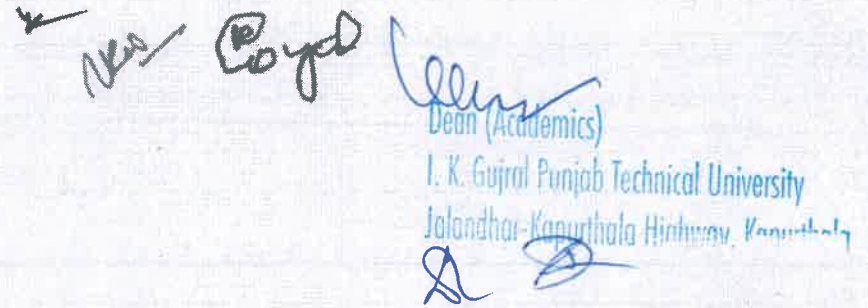 Goyal
Dean (Academics)
I. K. Gujral Punjab Technical University
Jalandhar-Kapurthala Highway, Kapurthala